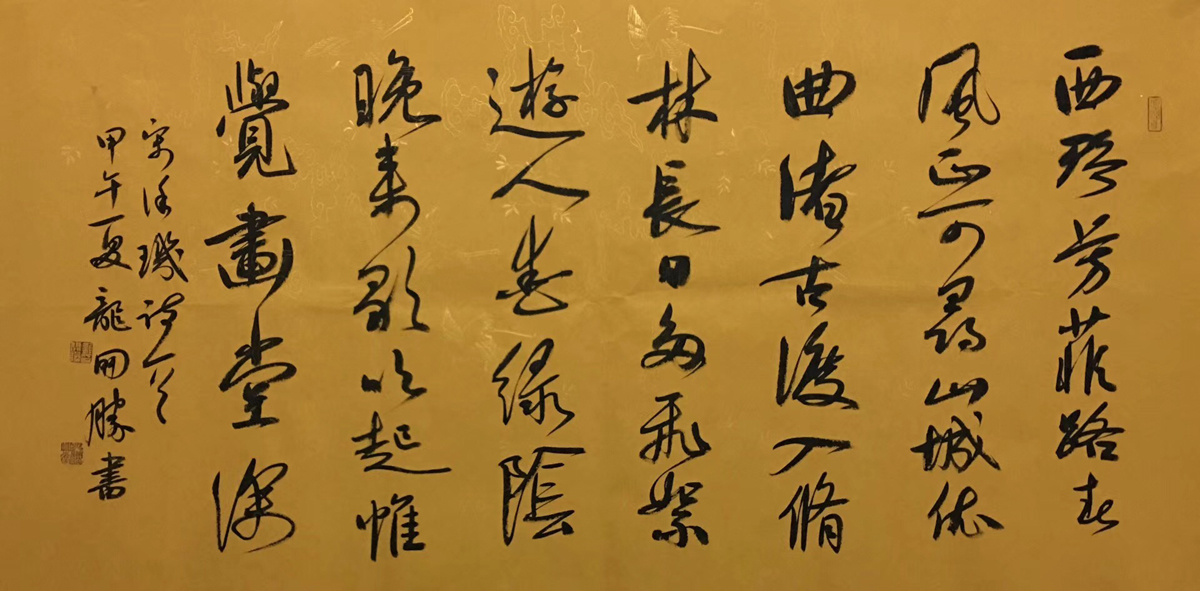 西野芳菲路春
風正可尋山城依
曲渚古渡入脩
林長日多飛絮
遊人愛綠陰
晚來歌吹起惟
覺畫堂深
宋徐璣詩一首
甲午夏龍開勝書